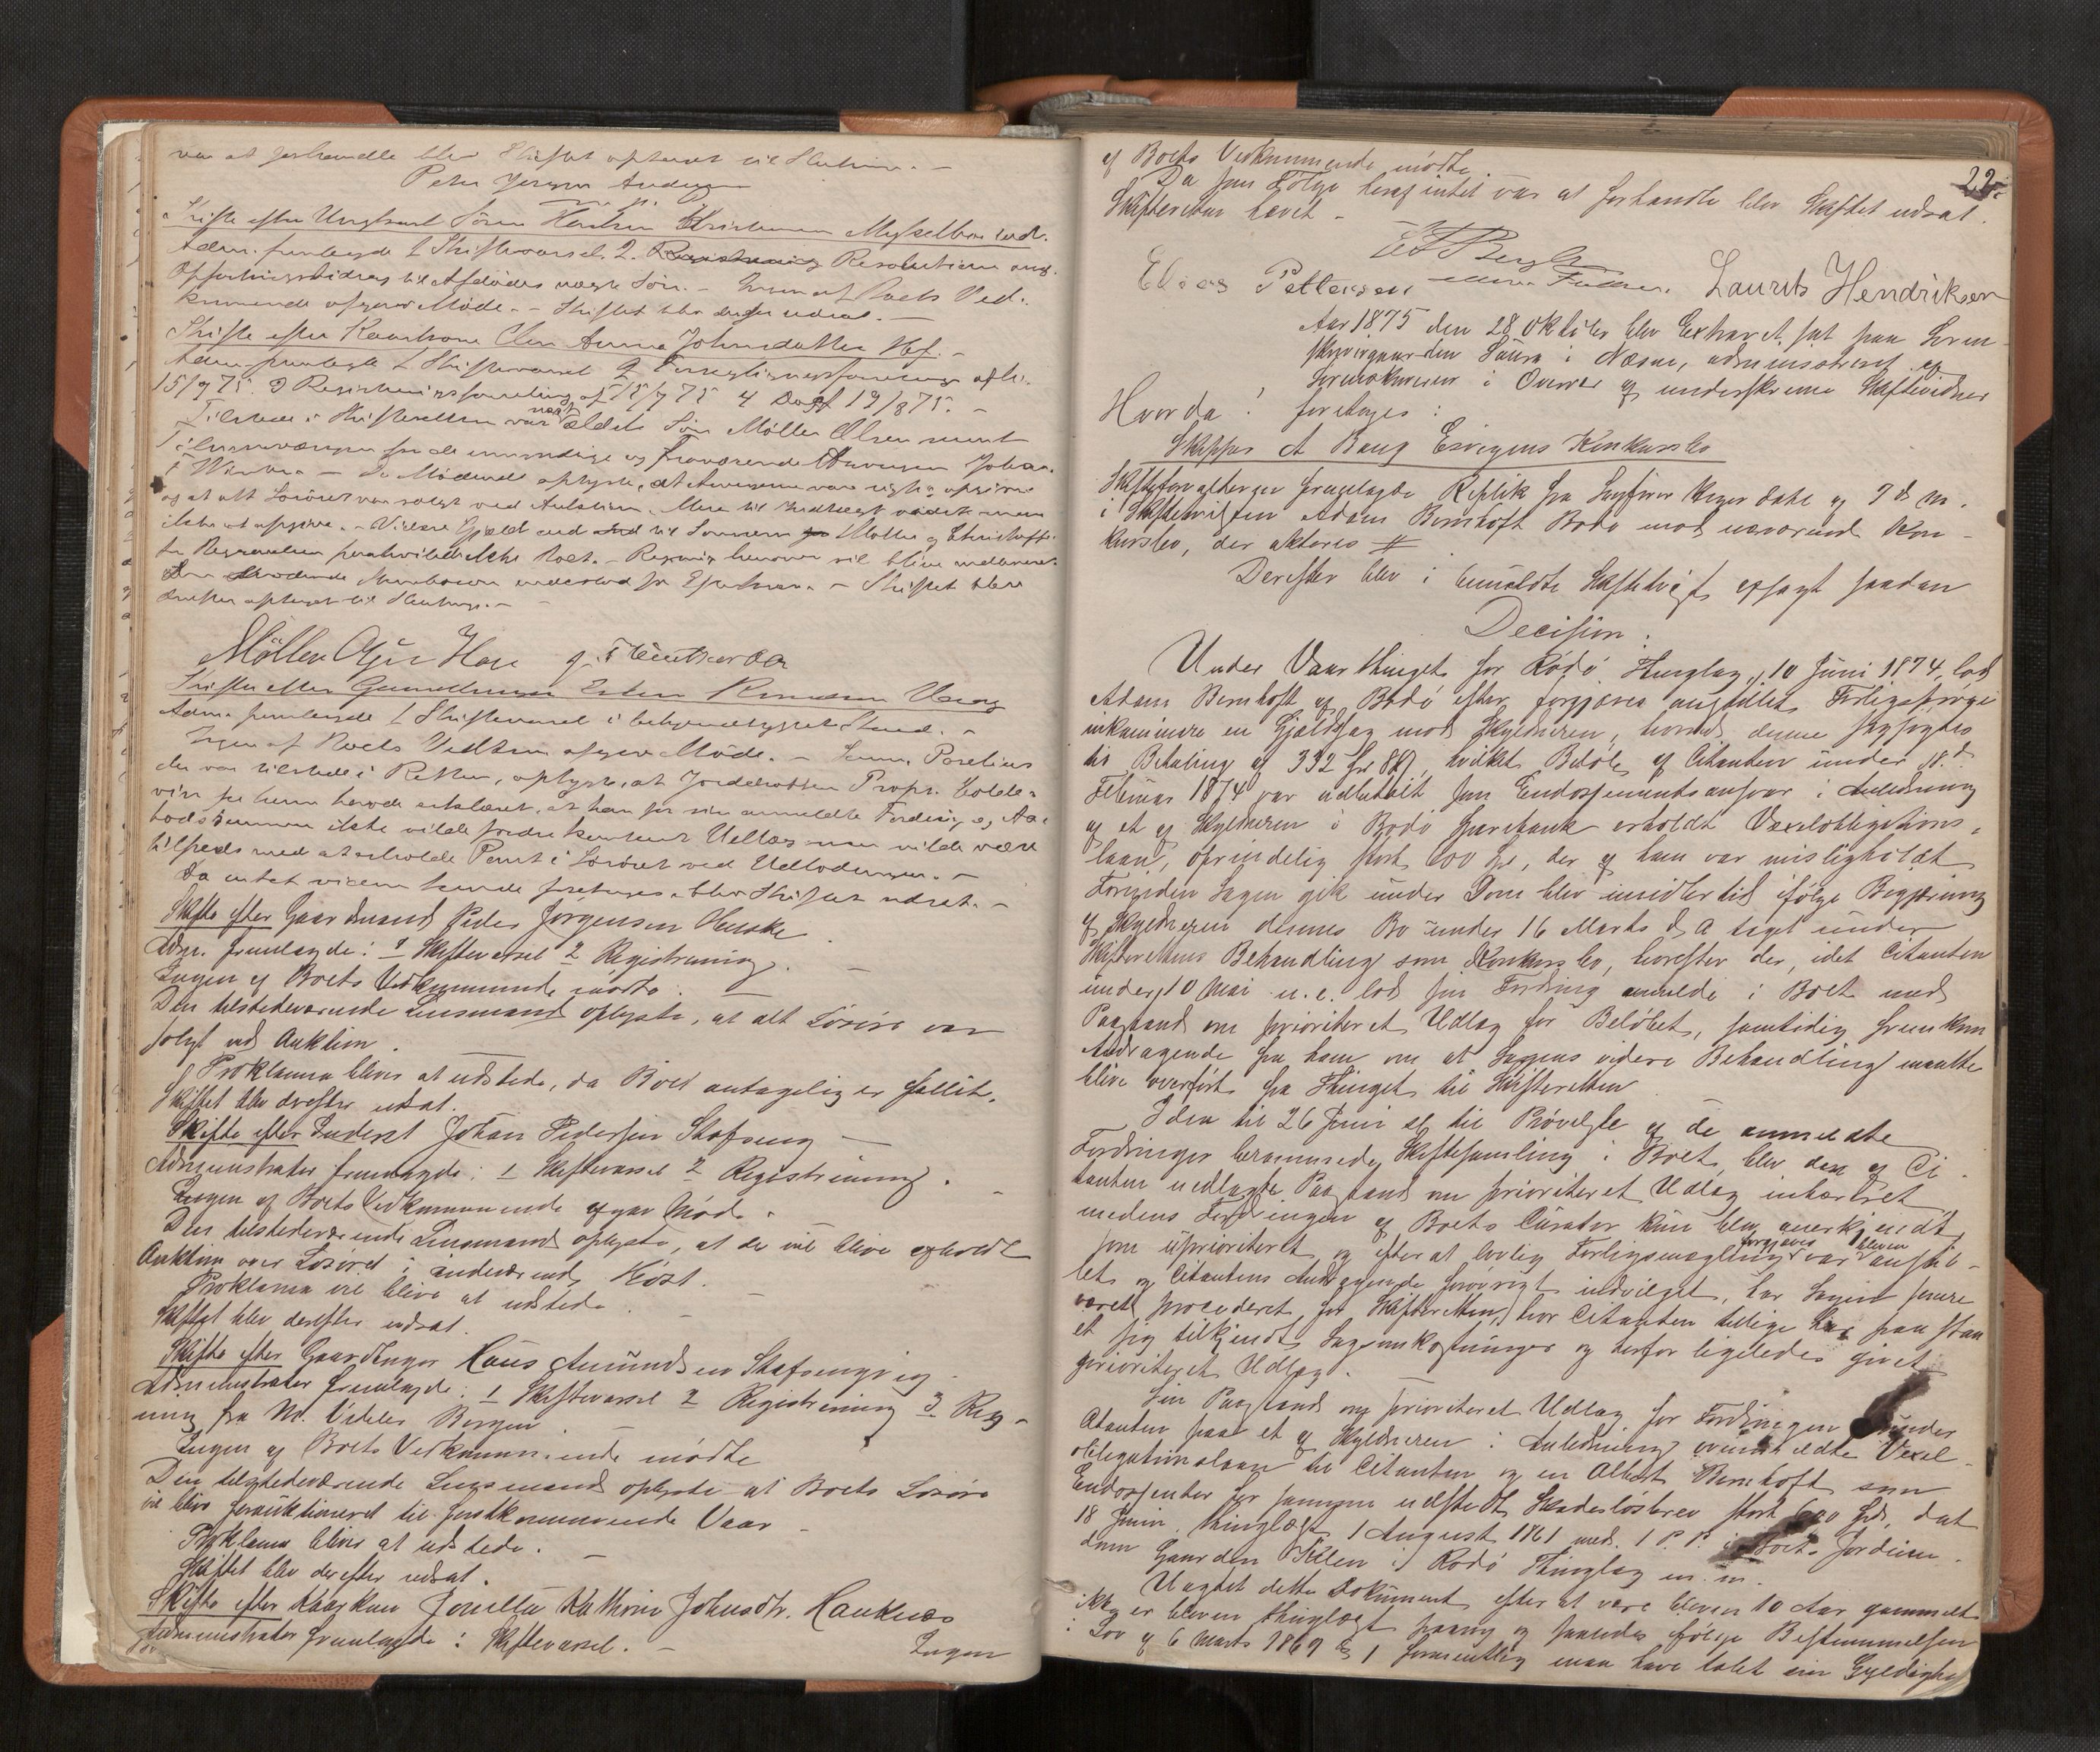 var at forhandle blev Skiftet optaget til Slutning. -
Peter Jørgen Andersen
m. p. P.
Skifte efter Ungkarl Sören Christensen Myselbæe ved.
Adm. fremlagde 1 Skiftevarsel. 2. Resolution ang.
Opfostringsbidrag til Afdödes uægte Sön. - Ingen af Boets Ved-
kommende afgav Möde. - Skiftet blev derfor udsat. -
Skifte efter Kaarkone Anna Johnsdatter Hof. -
Adm. fremlagde 1 Skiftevarsel 2 Forseglingsforretning afh.
15/7 75. 3 Registreringsforretning af 15/7 75 4 Do af 19/8 75. -
Tilstede i Skifteretten var næst ældste Sön Möller Olsen samt
Tilsynsværgen for de umyndige og fraværende Arvingen Johan
F - De Mödende oplyste, at Arvingerne vare rigtig opgivne
og at alt Lösöret var solgt ved Auktion. Mere til Indtægt vidste man
ikke at opgive. - Videre Gjæld end til Sönnerne Möller og Christoffer
for Begravelsen paahvilede ikke Boet. - Regning herover vil blive indleveret.
Skiftet blev
derefter optaget til Slutning. -
Möller Olsen Hov
Skifte efter Gammelmand Esten
Adm. fremlagde 1 Skiftevarsel i bekjendtgjort Stand. -
Ingen af Boets Vedkom. afgav Möde. -
der var tilstede i Retten, oplyste, at Jorddrotten Propr. Colde-
vin for ham havde erklæret, at han for sin anmeldte Fordring og Aa-
bodssummen ikke vilde fordre kontant Udlæg men vilde være
tilfreds med at erholde Pant i Lösöret ved Udlodningen. -
Da intet videre kunde foretages blev Skiftet udsat. -
Skifte efter Gaardmand Peder Jörgensen Huske
Adm. fremlagde: 1 Skiftevarsel 2 Registrering.
Ingen af Boets Vedkommende mödte. -
Den tilstedeværende Lensmand oplyste, at alt Lösöre var
solgt ved Auktion.
Proklama bliver at udstede, da Boet antagelig er fallit.
Skiftet blev derefter udsat.
Skifte efter Inderst Johan Pedersen Stafseng -
Administrator fremlagde: 1 Skiftevarsel 2 Registrering. -
Ingen af Boets Vedkommende afgav Möde.
Den tilstedeværende Lensmand oplyste, at der vil blive afholdt
Auktion over Lösöret i indeværende Höst. -
Proklama vil blive at udstede.
Skiftet blev derefter udsat.
Skifte efter Gaardbruger Hans Amundsen Stafsengvig -
Administrator fremlagde: 1 Skiftevarsel 2 Registrering 3 Reg-
ning fra M. Bergen.
Ingen af Boets Vedkommende mödte
Den tilstedeværende Lensmand oplyste at Boets Lösöre
vil blive forauktioneret til förstkommende Vaar -
Proklama bliver at udstede. -
Skiftet blev derefter udsat.
Skifte efter Kaarkone Jonetta Kathrine Johnsdtr. Hauknæs
Administrator fremlagde: Skiftevarsel. -
Ingen
22
af Boets Vedkommende mödte.
Da som Fölge heraf intet var at forhandle blev Skiftet udsat.
Skifteretten hævet -
Bergh
Elias Pettersen Laurits Hendriksen
Aar 1875 den 28 Oktober blev Extraret sat paa Soren-
skrivergaarden Saura i Næsne, administreret af
Sorenskriveren i Overvær af underskrevne Skiftevidner
Hvorda! foretages:
Skipper A Bang Esvigens Konkursbo
Skifteforvalteren fremlagde Replik fra Sagförer Meyer dat. af 7 d. M.
i Skiftetvisten Adam Bernhoft Bodö mod nærværende Kon-
kursbo, der akteres #
Derefter blev i bemældte Skiftetvist afsagt saadan
Decision:
Under Vaarthinget for Rödö Thinglag, 10 Juni 1874, lod
Adam Bernhoft af Bodö efter forgjæves anstillet Forligspröve
inkaminere en Gjældssag mod Skyldneren, hvorved denne sagsögtes
til Betaling af 332 Spd 88 s, hvilket Belöb af Citanten under 18.de
Februar 1874 var udbetalt som Endossementsansvar i Anledning
af et af Skyldneren i Bodö Sparebank erholdt Vexelobligations-
laan, oprindelig stort 600 Spd, der af ham var misligholdt.
Forinden Sagen gik under Dom blev imidlertid ifölge Begjæring
af Skyldneren dennes Bo under 16 Marts d. A taget under
Skifterettens Behandling som Konkursbo, hvorefter der, idet Citanten
under 10 Mai n. e. lod sin Fordring anmelde i Boet med
Paastand om prioriteret Udlæg for Belöbet, samtidig fremkom
Andragende fra ham om at Sagens videre Behandling maatte
blive overfört fra Thinget til Skifteretten.
I den til 26 Juni til Prövelse af de anmeldte
Fordringer berammede Skiftesamling i Boet, blev den af Ci-
tanten nedlagte Paastand om prioriteret Udlæg inhæreret
medens Fordringen af Boets Curator kun blev anerkjendt
som uprioriteret, og efter at lovlig Forligsmægling forgjæves var bleven anstil-
let og Citantens Andragende forövrigt indvilget, har Sagen senere
været procederet for Skifteretten, hvor Citanten tillige har paastaa-
et sig tilkjendt Sagsomkostninger og derfor ligeledes givet
prioriteret Udlæg.
Sin Paastand om prioriteret Udlæg for Fordringen grunder
Citanten paa et af Skyldneren i Anledning ovenmeldte Vexel-
obligationslaan til Citanten og en Albert Bernhoft som
Endossenter for samme udstedt Skadeslösbrev stort 600 Spd, dat.
18 Juni, thinglæst 1 August 1861 med 1 P. P. i Boets Jordeien-
dom Gaarden Kilen i Rödö Thinglag m. m.
Uagtet dette Dokument efter at være bleven 10 Aar gammelt
ikke er bleven thinglæst paany og saaledes ifölge Bestemmelsen
i Lov af 6 Marts 1869 § 1 formentlig maa have tabt sin Gyldighed